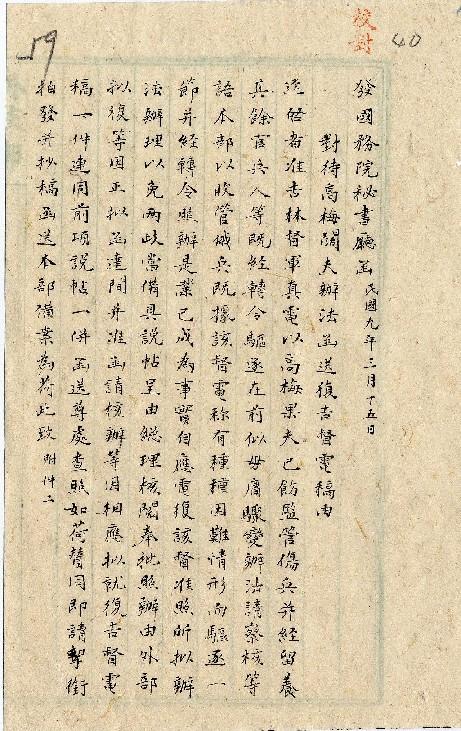 校對
40
19
發國務院秘書廳函 民國九年三月十五日
對待高梅闊夫辦法函送復吉督電稿由
逕啓者准吉林督軍真電以高梅果夫已飭監管傷兵并經留養
兵餘官兵人等既經轉令驅逐在前似毋庸驟變辦法請察核等
語本部以收管械兵既據該督電稱有種種困難情形而驅逐一
節并經轉令照辦是業已成為事實自應電復該督准照所擬辦
法辦理以免兩歧當備具說帖呈由總理核閱奉批照辦由外部
擬復等因正擬函達間并准函請核辦等因相應擬就復吉督電
稿一件連同前項說帖一併函送尊處查照如荷贊同即請挈銜
拍發并抄稿函送本部備案為荷此致 附件二